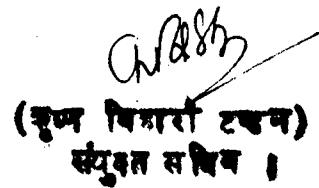 (कृष्ण बिहारी टण्डन)
संयुक्त सचिव ।